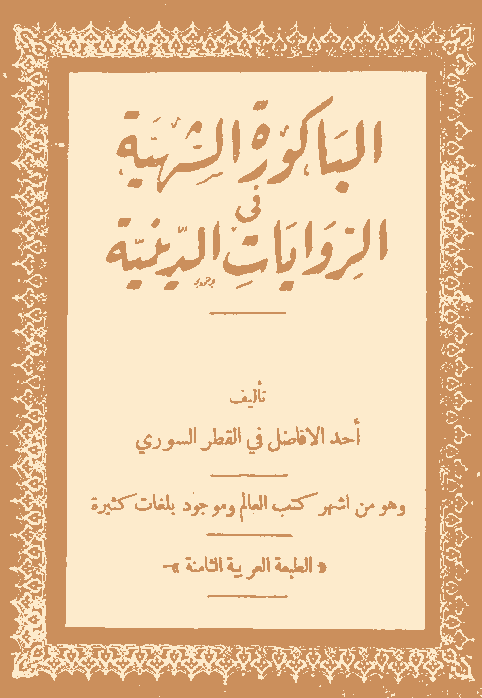 الباكورة الشهية
في
الروايات الدينية
تأليف
أحد الافاضل في القطر السوري
وهو من اشهر كتب العالم وموجود بلغات كثيرة
« الطبعة العربية الثامنة »